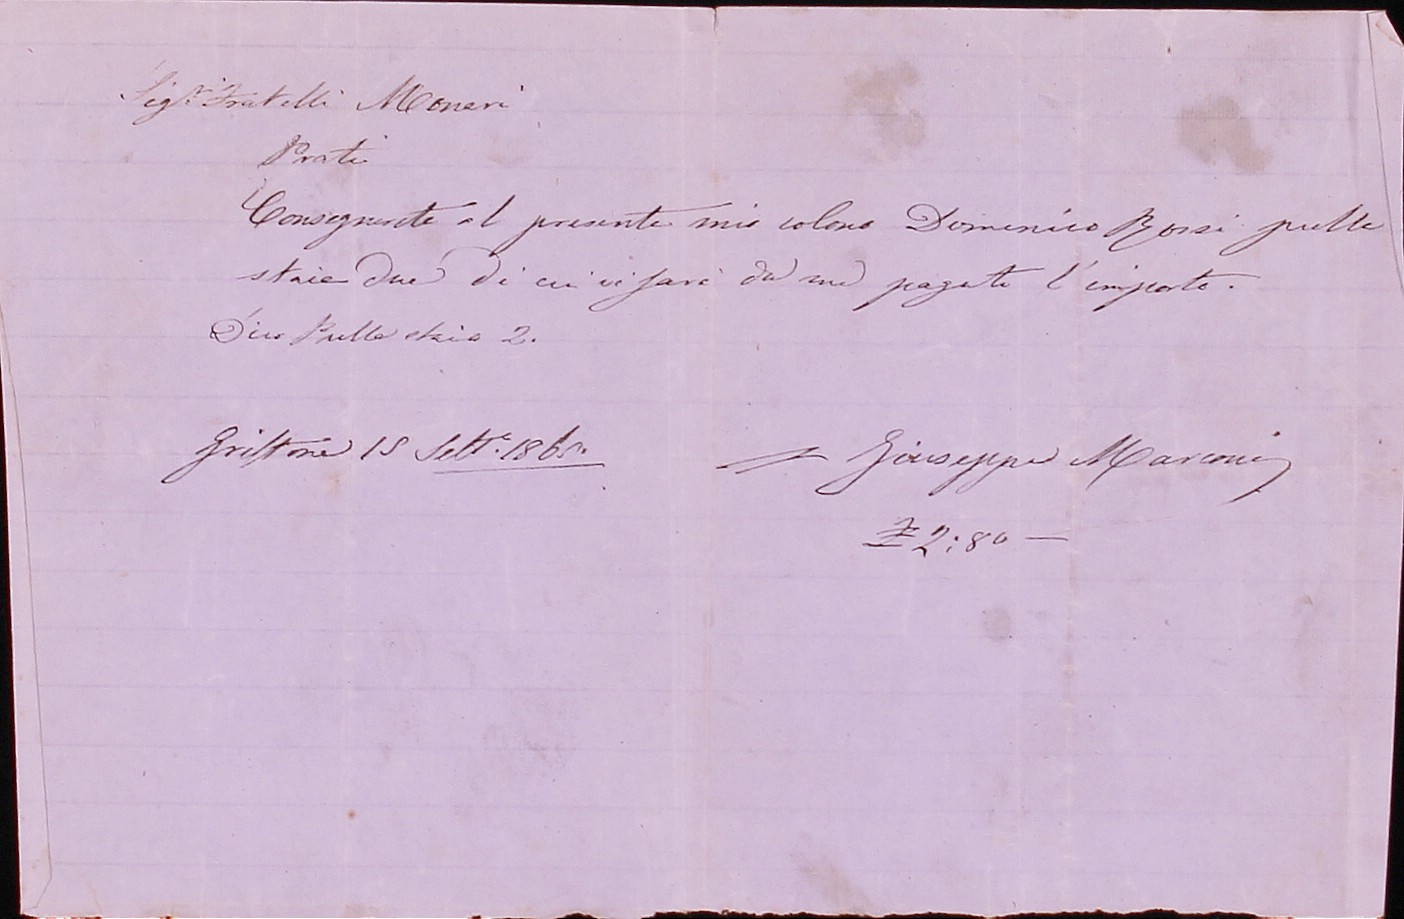 Sigri Fratelli Moneri
Prati
Consegnerete al presente mio colono Domenico Rossi pulla
staie due di cui vi sarà da me pagato l'importo.
Dico Pulla staia 2.
Griffone 15 Sette 1865.
Giuseppe Marconi
£ 2:80 —